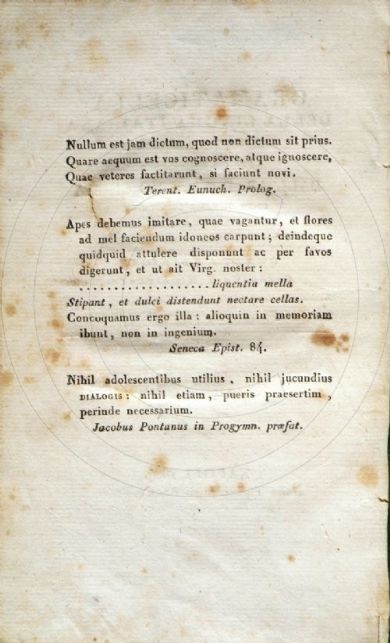 Nullum est jam dictum, quod non dictum sit prius.
Quare aequum est vos cognoscere, atque ignoscere,
Quae veteres factitarunt, si faciunt novi.
Terent. Eunuch. Prolog.
Apes debemus imitare, quae vagantur, et flores
ad mel faciendum idoneos carpunt; deindeque
quidquid attulere disponunt ac per favos
digerunt, et ut ait Virg. noster:
. . . . . . . . . . . . . . . . . . liquentia mella
Stipant, et dulci distendunt nectare cellas.
Concoquamus ergo illa: alioquin in memoriam
ibunt, non in ingenium.
Seneca Epist. 84.
Nihil adolescentibus utilius, nihil jucundius
DIALOGIS: nihil etiam, pueris praesertim,
perinde necessarium.
Jacobus Pontanus in Progymn. præfat.